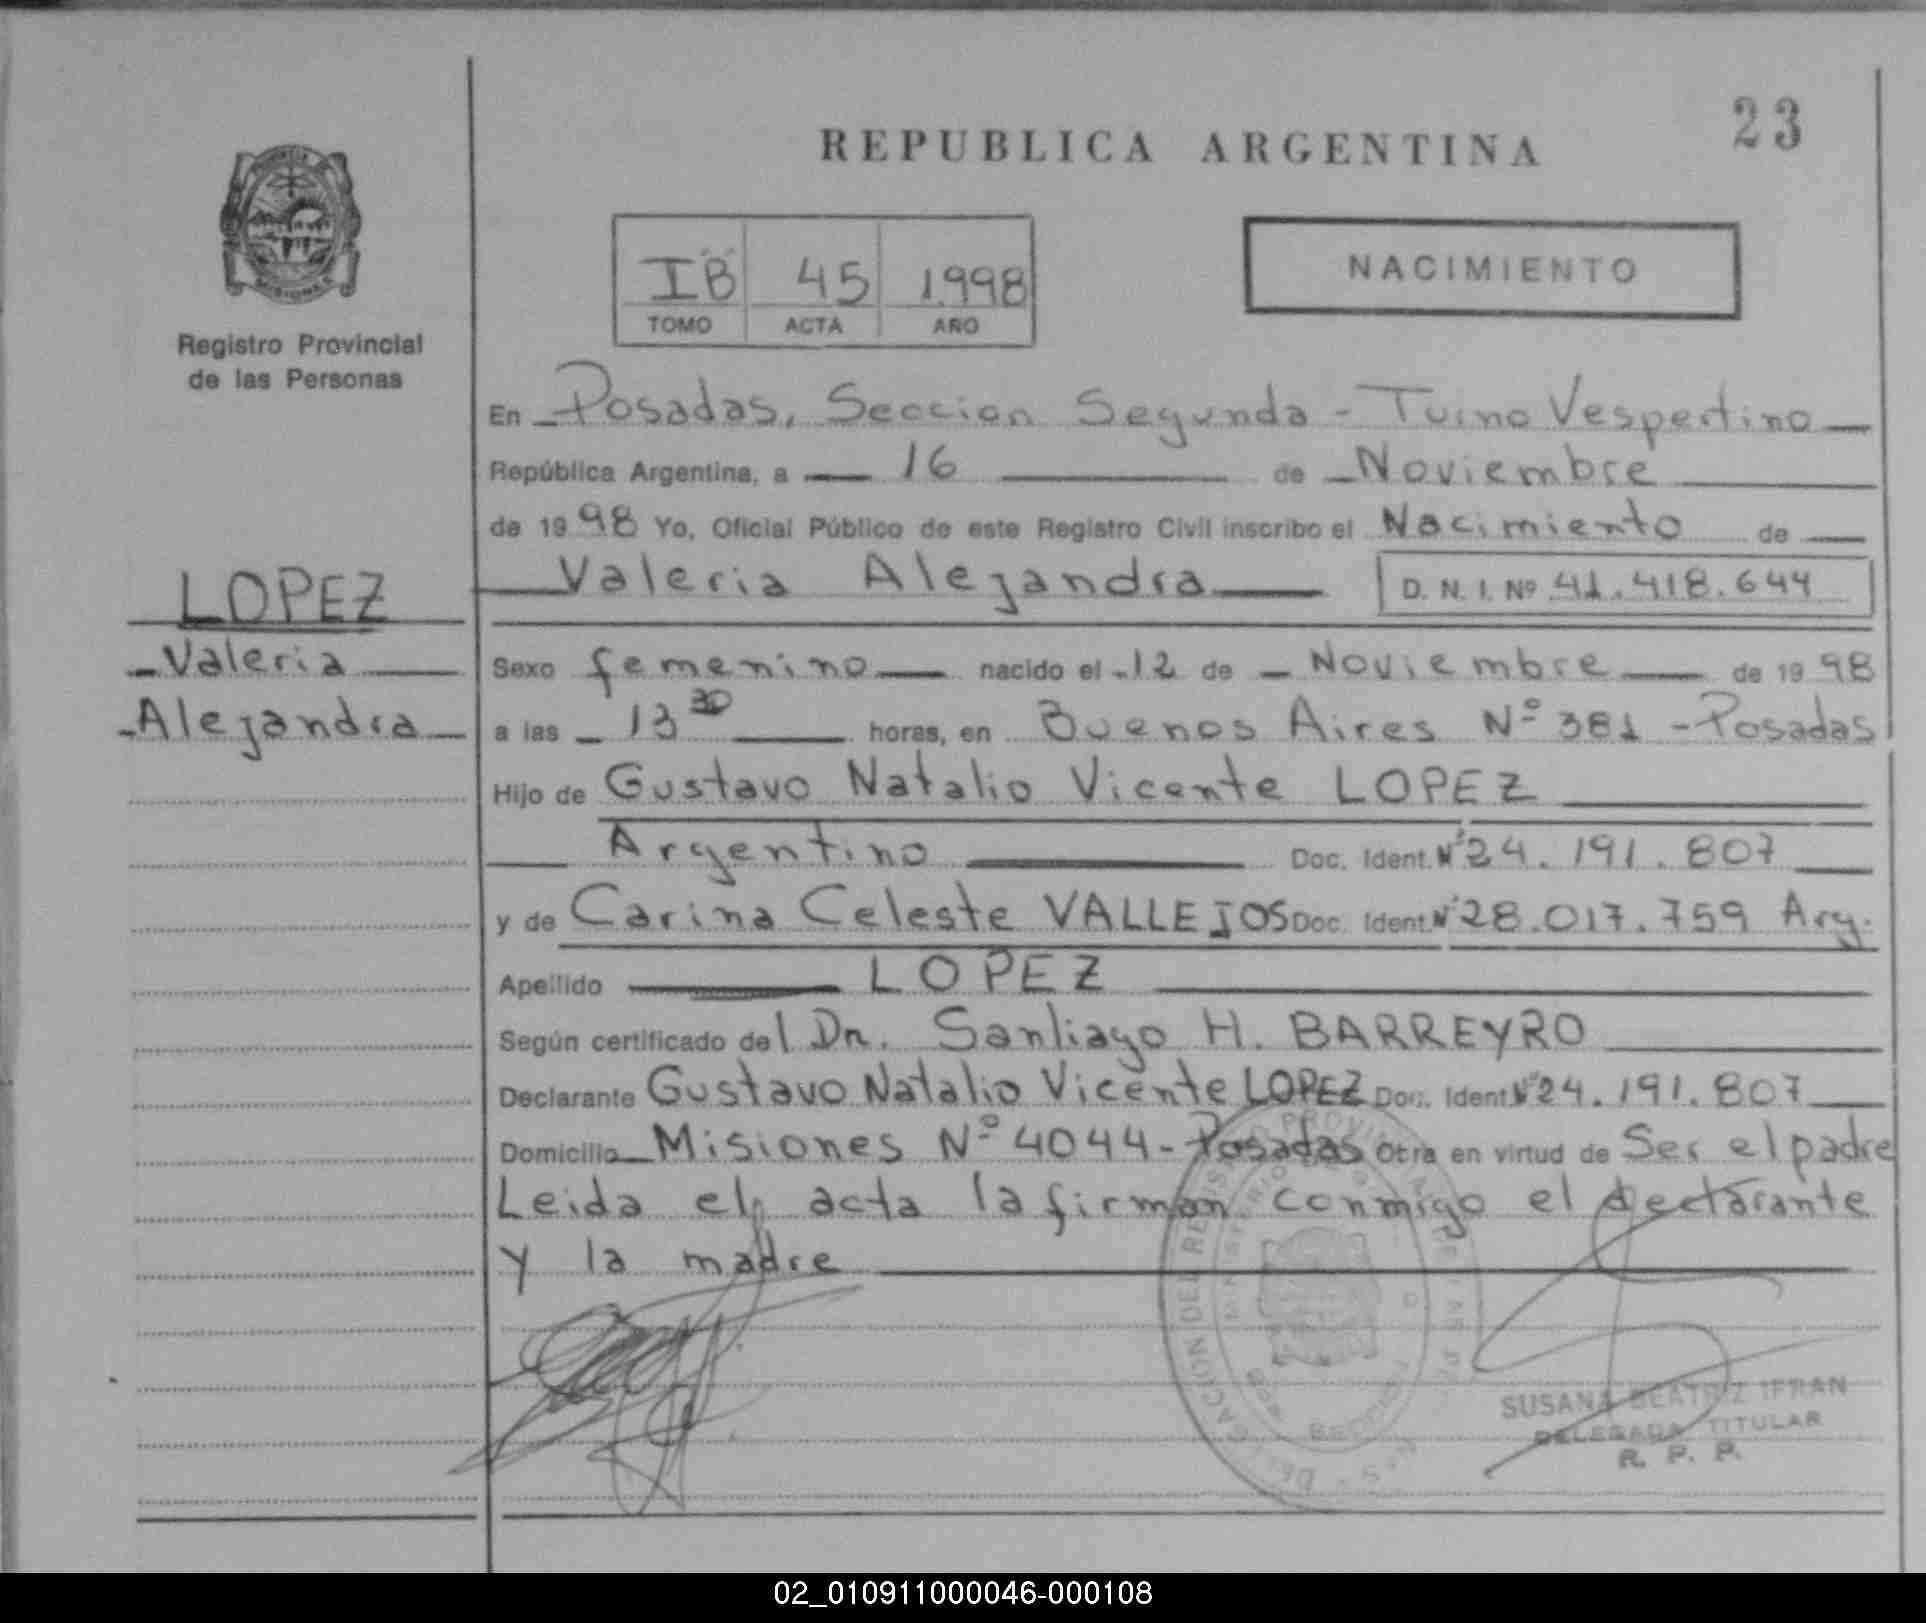 23
REPUBLICA ARGENTINA
Registro Provincial
de las Personas
IB 45 1.998
TOMO ACTA AÑO
NACIMIENTO
En Posadas, Seccion Segunda - Turno Vespertino
República Argentina, a 16 de Noviembre
de 1998 Yo, Oficial Público de este Registro Civil inscribo el Nacimiento de
Valeria Alejandra D. N. I. Nº 41.418.644
LOPEZ
Valeria
Alejandra
Sexo femenino nacido el 12 de Noviembre de 1998
a las 13 30 horas, en Buenos Aires Nº 381 - Posadas
Hijo de Gustavo Natalio Vicente LOPEZ
Argentino Doc. Ident. Nº 24.191.807
y de Carina Celeste VALLEJOS Doc. Ident. Nº 28.017.759 Arg.
Apellido LOPEZ
Según certificado del Dr. Santiago H. BARREYRO
Declarante Gustavo Natalio Vicente LOPEZ Doc. Ident. Nº 24.191.807
Domicilio Misiones Nº 4044 - Posadas Obra en virtud de Ser el padre
Leida el acta la firman conmigo el declarante
y la madre
SUSANA BEATRIZ IFRAN
DELEGADA TITULAR
R. P. P.
02_010911000046-000108